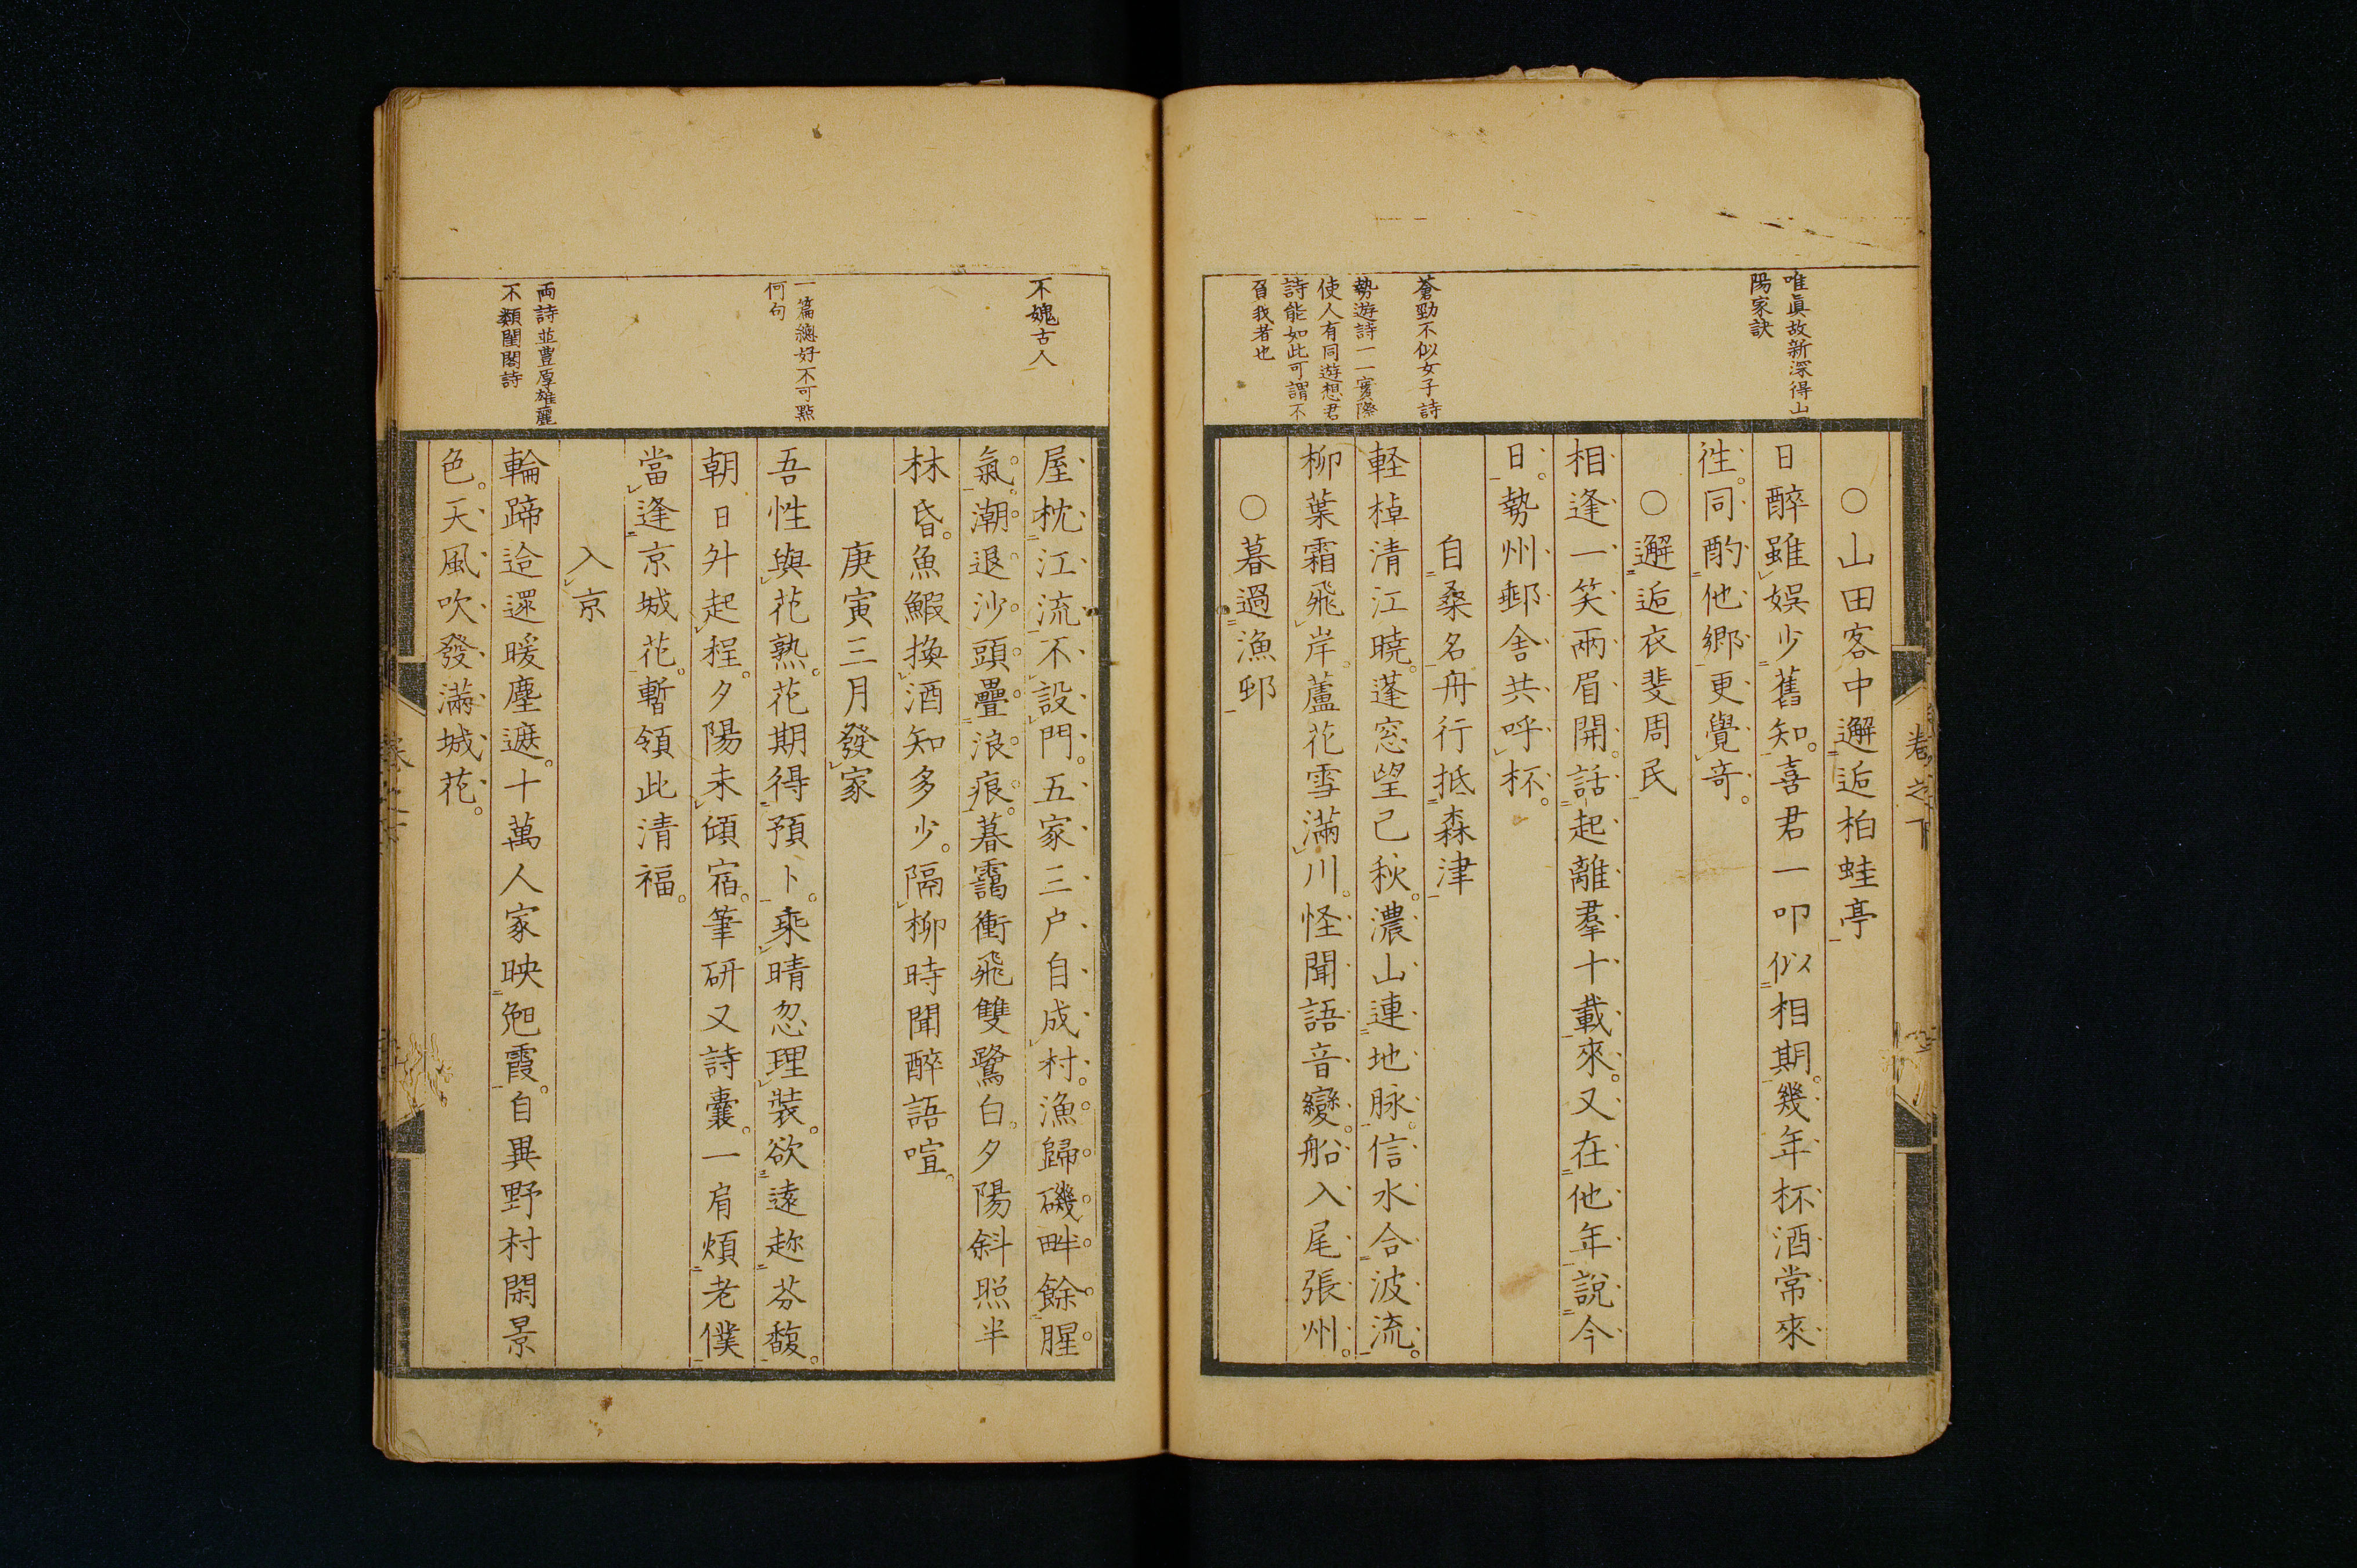 唯眞故新深得山
陽家訣
蒼勁不似女子詩
勢遊詩一一實際
使人有同遊想君
詩能如此可謂不
負我者也
卷之下
○山田客中邂逅柏蛙亭
日醉雖娯少舊知。喜君一叩似相期。幾年杯酒常來
徃。同酌他鄉更覺奇。
○邂逅衣斐周民
相逢一笑兩眉開。話起離羣十載來。又在他年說今
日。勢州郵舍共呼杯。
自桑名舟行抵森津
軽棹清江曉。蓬窓望已秋。濃山連地脉。信水合波流。
柳葉霜飛岸。蘆花雪滿川。怪聞語音變。船入尾張州。
○暮過漁邨
不媿古人
一篇總好不可點
何句
両詩並豊厚雄麗
不類閨閣詩
屋枕江流不設門。五家三户自成村。漁歸磯畔餘腥
氣。潮退沙頭疊浪痕。暮靄衝飛雙鷺白。夕陽斜照半
林昏。魚鰕換酒知多少。隔柳時聞醉語喧。
庚寅三月發家
吾性與花熟。花期得預卜。乘晴忽理裝。欲遠趂芬馥。
朝日外起程。夕陽未傾宿。筆研又詩囊。一肩煩老僕
當逢京城花。暫領此清福。
入京
輪蹄迨還暖塵遮。十萬人家映兔霞。自異野村閑景
色。天風吹發滿城花。